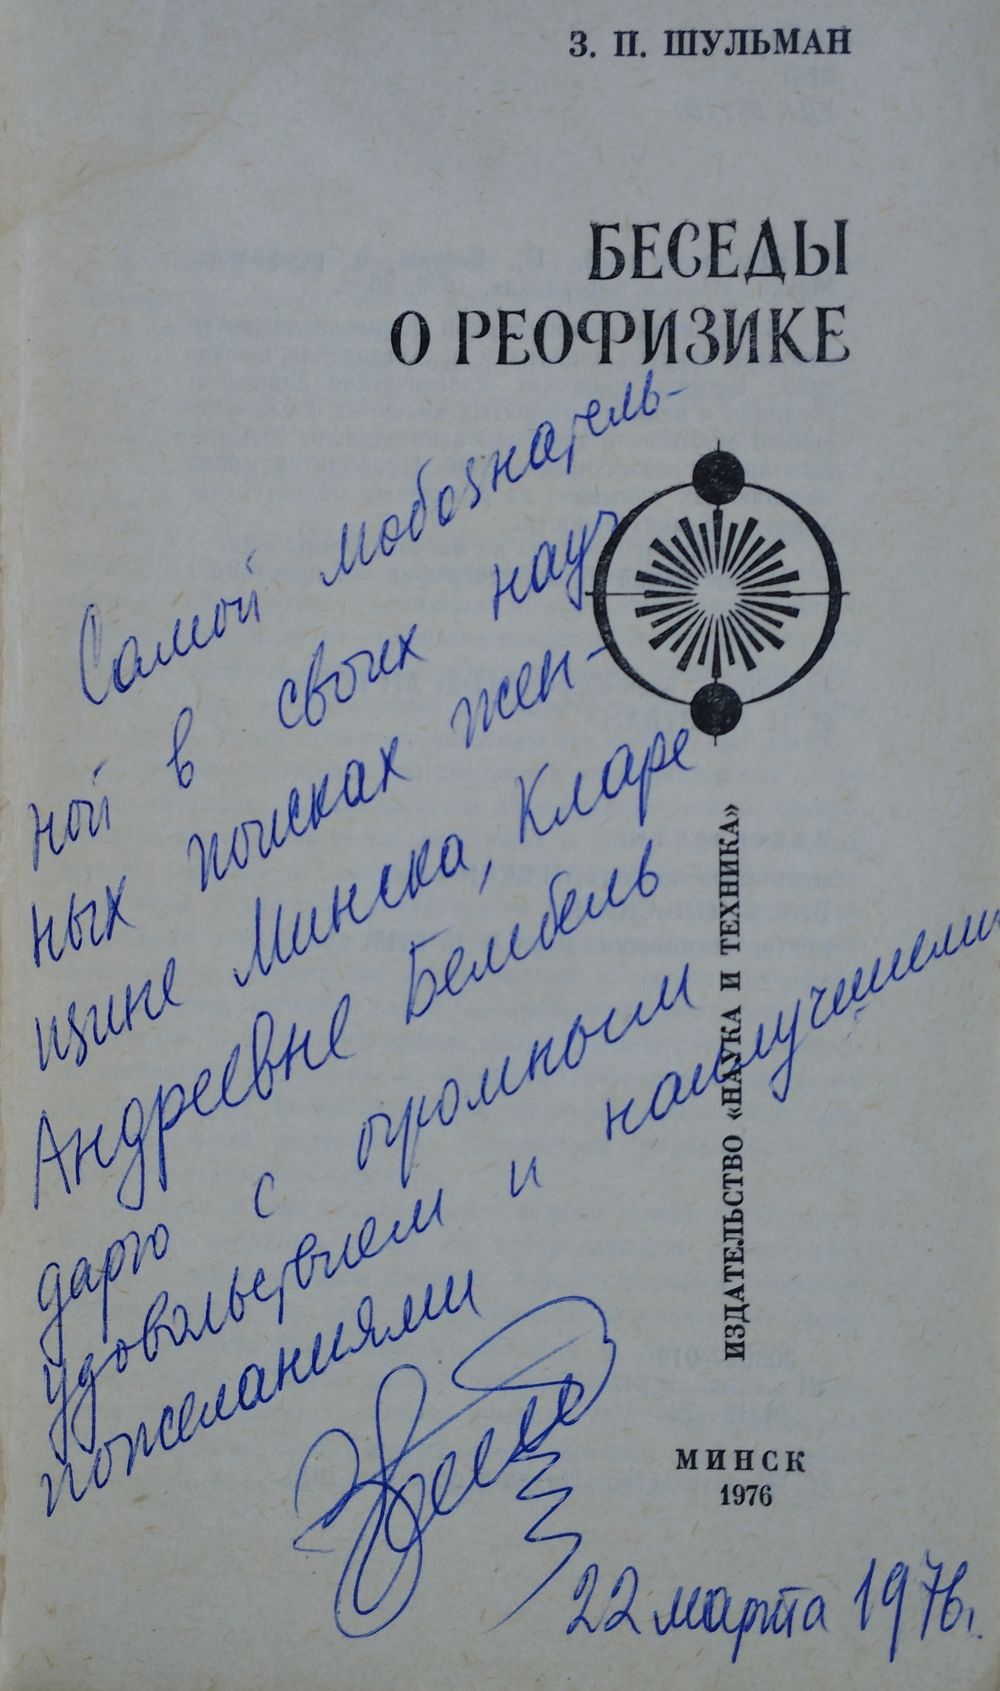 З. П. ШУЛЬМАН
БЕСЕДЫ
О РЕОФИЗИКЕ
Самой любознатель-
ной в своих науч
ных поисках жен-
щине Минска, Кларе
Андреевне Бембель
дарю с огромным
удовольствием и наилучшими
пожеланиями
ИЗДАТЕЛЬСТВО «НАУКА И ТЕХНИКА»
МИНСК
1976
22 марта 1976г.